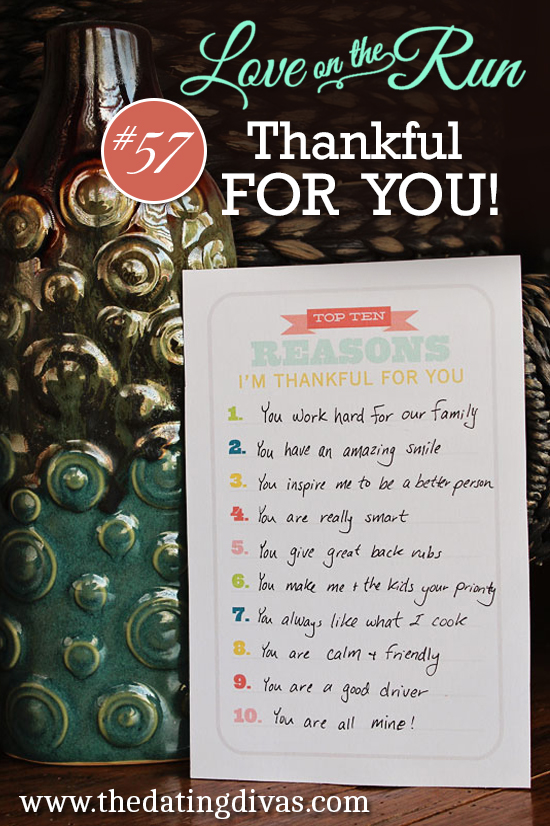 Love on the Run
#57
Thankful
FOR YOU!
TOP TEN
REASONS
I'M THANKFUL FOR YOU
1. You work hard for our family
2. You have an amazing smile
3. You inspire me to be a better person
4. You are really smart
5. You give great back rubs
6. You make me + the kids your priority
7. You always like what I cook
8. You are calm + friendly
9. You are a good driver
10. You are all mine!
www.thedatingdivas.com